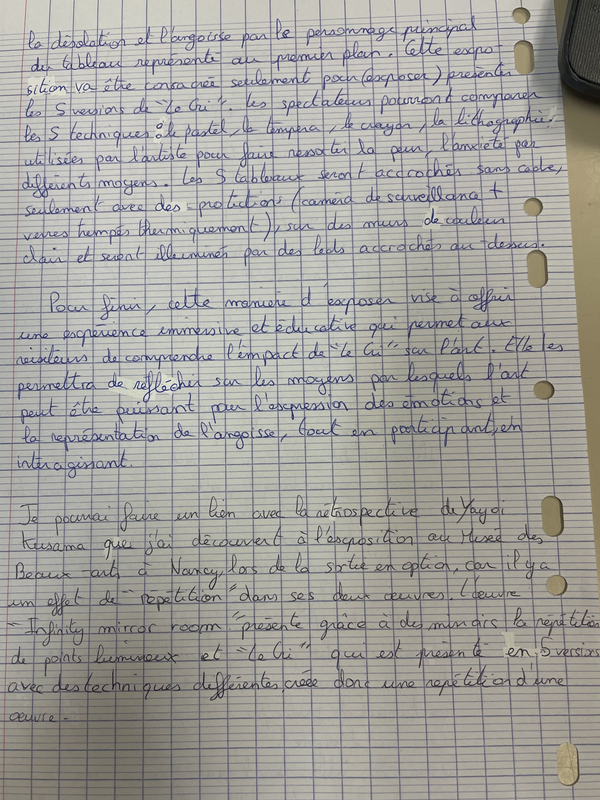 la désolation et l'angoisse par le personnage principal
du tableau représenté au premier plan. Cette expo-
sition va être consacrée seulement pour (exposer) présenter
les 5 versions de "Le Cri". Les spectateurs pourront comparer
les 5 techniques : le pastel, le tempera, le crayon, la lithographie.
utilisées par l'artiste pour faire ressortir la peur, l'anxiété par
différents moyens. Les 5 tableaux seront accrochés sans cadre,
seulement avec des protections (caméra de surveillance +
verres trempés thermiquement), sur des murs de couleur
clair et seront illuminés par des leds accrochés au-dessus.
Pour finir, cette manière d'exposer vise à offrir
une expérience immersive et éducative qui permet aux
visiteurs de comprendre l'impact de "Le Cri" sur l'art. Elle les
permettra de réfléchir sur les moyens par lesquels l'art
peut être puissant pour l'expression des émotions et
la représentation de l'angoisse, tout en participant, en
interagissant.
Je pourrai faire un lien avec la rétrospective de Yayoi
Kusama que j'ai découvert à l'exposition au Musée des
Beaux-arts à Nancy, lors de la sortie en option, car il y a
un effet de "répétition" dans ses deux œuvres. L'œuvre
"Infinity mirror room" présente grâce à des miroirs la répétition
de points lumineux et "Le Cri" qui est présenté en 5 versions
avec des techniques différentes, créée donc une répétition d'une
œuvre.